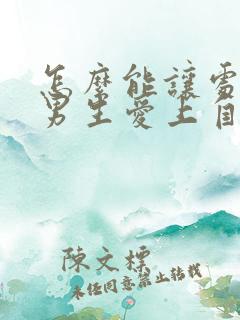 怎麼能讓雪
男生愛上自
陳文標
未經同意禁止轉載